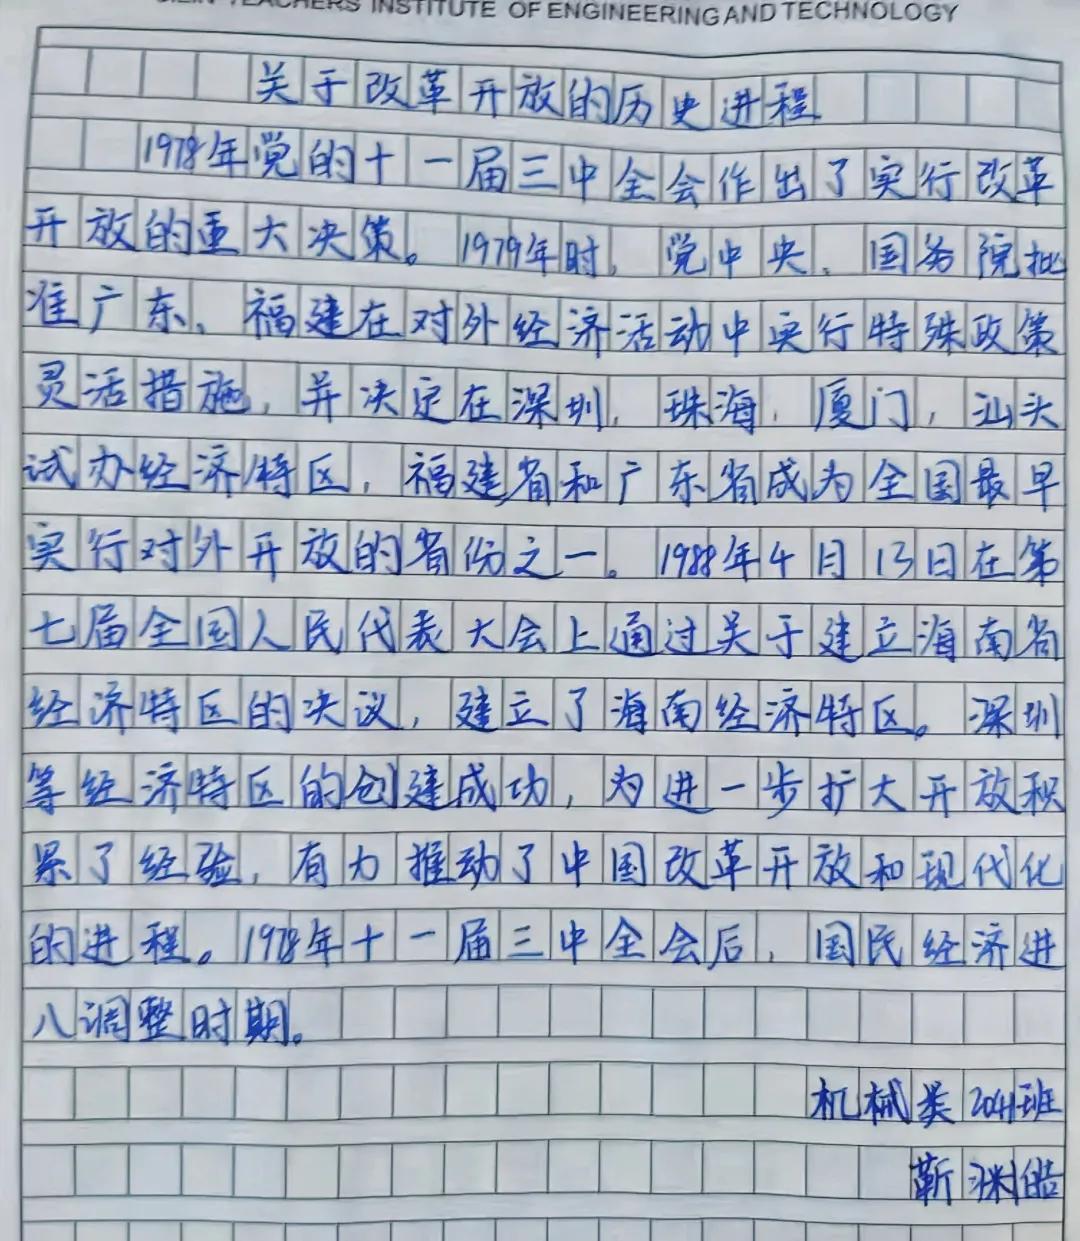 TEACHERS INSTITUTE OF ENGINEERING AND TECHNOLOGY
关于改革开放的历史进程
1978年党的十一届三中全会作出了实行改革
开放的重大决策。1979年时,党中央、国务院批
准广东、福建在对外经济活动中实行特殊政策
灵活措施,并决定在深圳,珠海,厦门,汕头
试办经济特区,福建省和广东省成为全国最早
实行对外开放的省份之一。1988年4月13日在第
七届全国人民代表大会上通过关于建立海南省
经济特区的决议,建立了海南经济特区。深圳
等经济特区的创建成功,为进一步扩大开放积
累了经验,有力推动了中国改革开放和现代化
的进程。1978年十一届三中全会后,国民经济进
八调整时期。
机械类2041班
靳洣皓